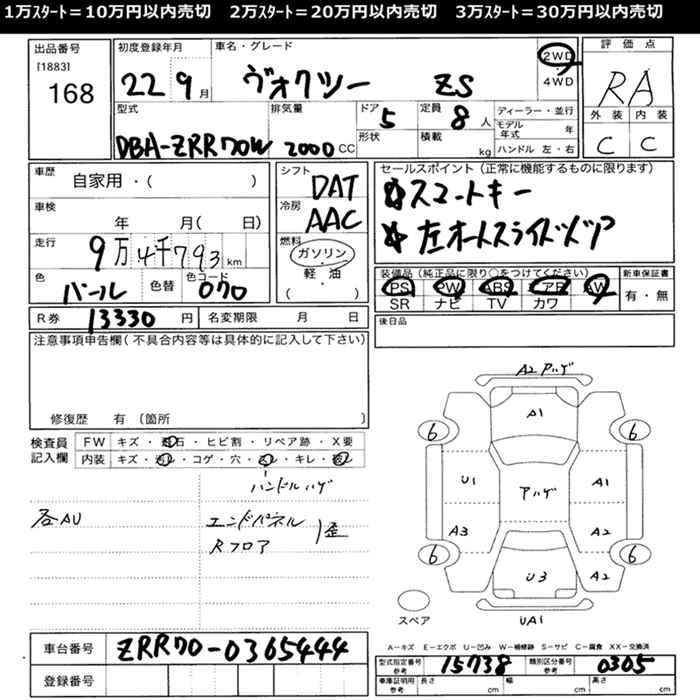 1万ｽﾀｰﾄ＝10万円以内売切　2万ｽﾀｰﾄ＝20万円以内売切　3万ｽﾀｰﾄ＝30万円以内売切
出品番号
[1883]
168
初度登録年月
22 9月
車名・グレード
ヴォクシー ZS
2WD
・
4WD
評価点
RA
外装 内装
C C
型式
DBA-ZRR70W
排気量
2000 CC
ドア
5
形状
定員
8 人
積載
kg
ディーラー・並行
モデル年式 年
ハンドル 左・右
車歴
自家用・( )
車検
年 月( 日)
走行
9万4千793 km
色
パール
色替
色コード
070
シフト
DAT
冷房
AAC
燃料
ガソリン
・
軽・油
( )
セールスポイント（正常に機能するものに限ります）
☆スマートキー
☆左オートスライドドア
装備品（純正品に限り○をつけてください）
PS PW ABS エアB AW
SR ナビ TV カワ
新車保証書
有・無
R券 13330 円
名変期限 月 日
後日品
注意事項申告欄（不具合内容等は具体的に記入して下さい）
修復歴 有 〔箇所 〕
検査員
記入欄
FW キズ・飛石・ヒビ割・リペア跡・X要
内装 キズ・汚レ・コゲ・穴・スレ・キレ・破レ
ハンドルハゲ
各AU
エンドパネル
Rフロア
歪
A2 アハゲ
A1
6 6
U1 アハゲ A1
A3 A2
6 6
U3 A2
UA1
スペア
A－キズ E－エクボ U－凹み W－補修跡 S－サビ C－腐食 XX－交換済
車台番号 ZRR70-0365444
登録番号
型式指定番号
参考
15738
類別区分番号
参考
0305
車庫証明用
参考
長さ cm
幅 cm
高さ cm